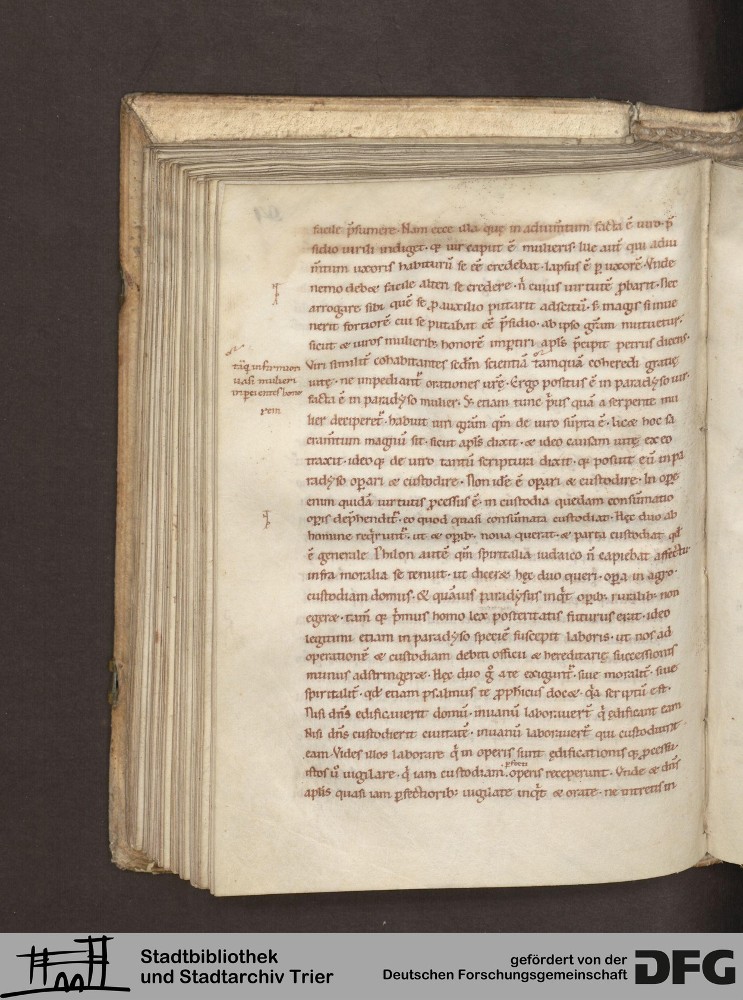 facile p̄sumere. Nam ecce illa quę in adium̄tum facta ē uiro. p̄
sidio uirili indiget. qꝫ uir caput ē mulieris. Ille aut̄ qui adiu
m̄tum uxoris habiturū se eē credebat. lapsus ē ꝑ uxorē. Vnde
nemo debet facile alteri se credere. n̄ cuius uirtutē ꝓbarit. Nec
arrogare sibi quē se ꝓ auxilio putarit adscitū. s; magis si inue
nerit fortiorē cui se putabat eē p̄sidio. ab ipso gr̄am mutuetur.
sicut & uiros mulierib; honorē inꝑtiri apl̄s p̄cipit petrus dicens.
Viri similit̄ cohabitantes sed̄m scientiā tamquā coheredi gratię
uitę. ne impediant̄ orationes ur̄ę. Ergo positus ē in paradyso uir.
facta ē in paradyso mulier. Vt etiam tunc p̄us quā a serpente mu
lier deciperet̄. habuit uiri gr̄am qm̄ de uiro sūpta ē. licet hoc sa
cram̄tum magnū sit. sicut apl̄s dixit. & ideo causam uitę ex eo
traxit. ideoqꝫ de uiro tantū scriptura dixit. qꝫ posuit eū in pa
radyso oꝑari & custodire. Non idē ē oꝑari & custodire. In oꝑe
enim quidā uirtutis ꝓcessus ē. in custodia quedam consūmatio
oꝑis dep̄hendit̄. eo quod quasi consūmata custodiat. Hęc duo ab
homine reqrunt̄. ut & oꝑib; noua querat. & parta custodiat qd̄
ē generale. Philon autē qm̄ spiritalia iudaico n̄ capiebat affectu
infra moralia se tenuit. ut diceret hęc duo queri. oꝑa in agro.
custodiam domus. & quāuis paradysus inqt̄ oꝑib; ruralib; non
egeret. tam̄ qꝫ p̄mus homo lex posteritatis futurus erat. ideo
legitimi etiam in paradyso speciē suscepit laboris. ut nos ad
operationē & custodiam debiti officii & hereditarię successionis
munus adstringeret. Hęc duo g̊ a te exigunt̄. siue moralit̄. siue
spiritalit̄. qd̄ etiam psalmus te ꝓphicus docet. qa scriptū est.
Nisi dn̄s edificauerit domū. inuanū laborauert̄ q̄ ędificant eam
Nisi dn̄s custodierit ciuitatē. inuanū laborauert̄ qui custodiunt
eam. Vides illos laborare q̄ in operis sunt ędificationis qꝫ ꝓcessu
istos ū uigilare. q̄ iam custodiam ꝑfecti operis receperunt. Vnde & dn̄s
apl̄is quasi iam ꝑfectiorib; uigilate inqt̄ & orate. ne intretis in
tāq̄ infirmiori
uasi mulieri
inꝑcientes hono
rem
Stadtbibliothek
und Stadtarchiv Trier
gefördert von der
Deutschen Forschungsgemeinschaft
DFG